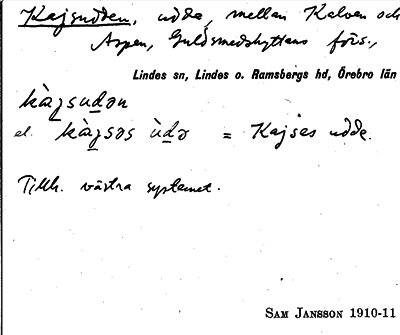 Kajsudden, udde, mellan Kalven och
Aspen, Guldsmedshyttans förs.,
Lindes sn, Lindes o. Ramsbergs hd, Örebro län
kàɡsudən
el. kàɡsəs ùdə = Kajsas udde.
Tillh. västra systemet.
SAM JANSSON 1910-11